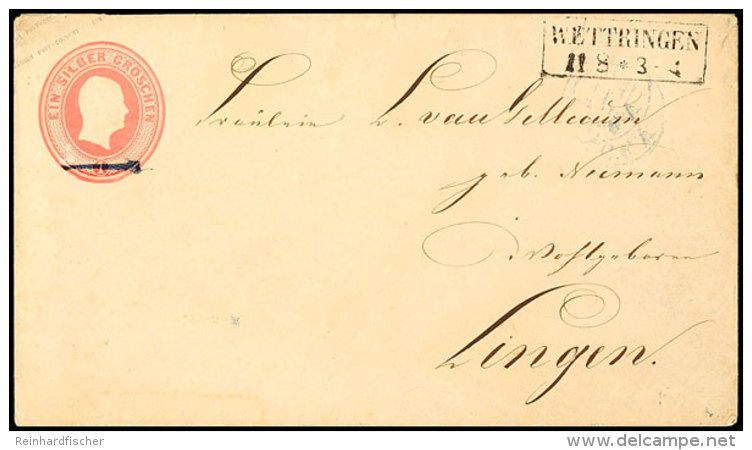 POST-COUVERT
EIN SILBER GROSCHEN
1
WETTRINGEN
11 8 * 3-4
Fräulein L. van
geb. Niemann
Wohlgeboren
Lingen.
Reinhardfischer
www.delcampe.net